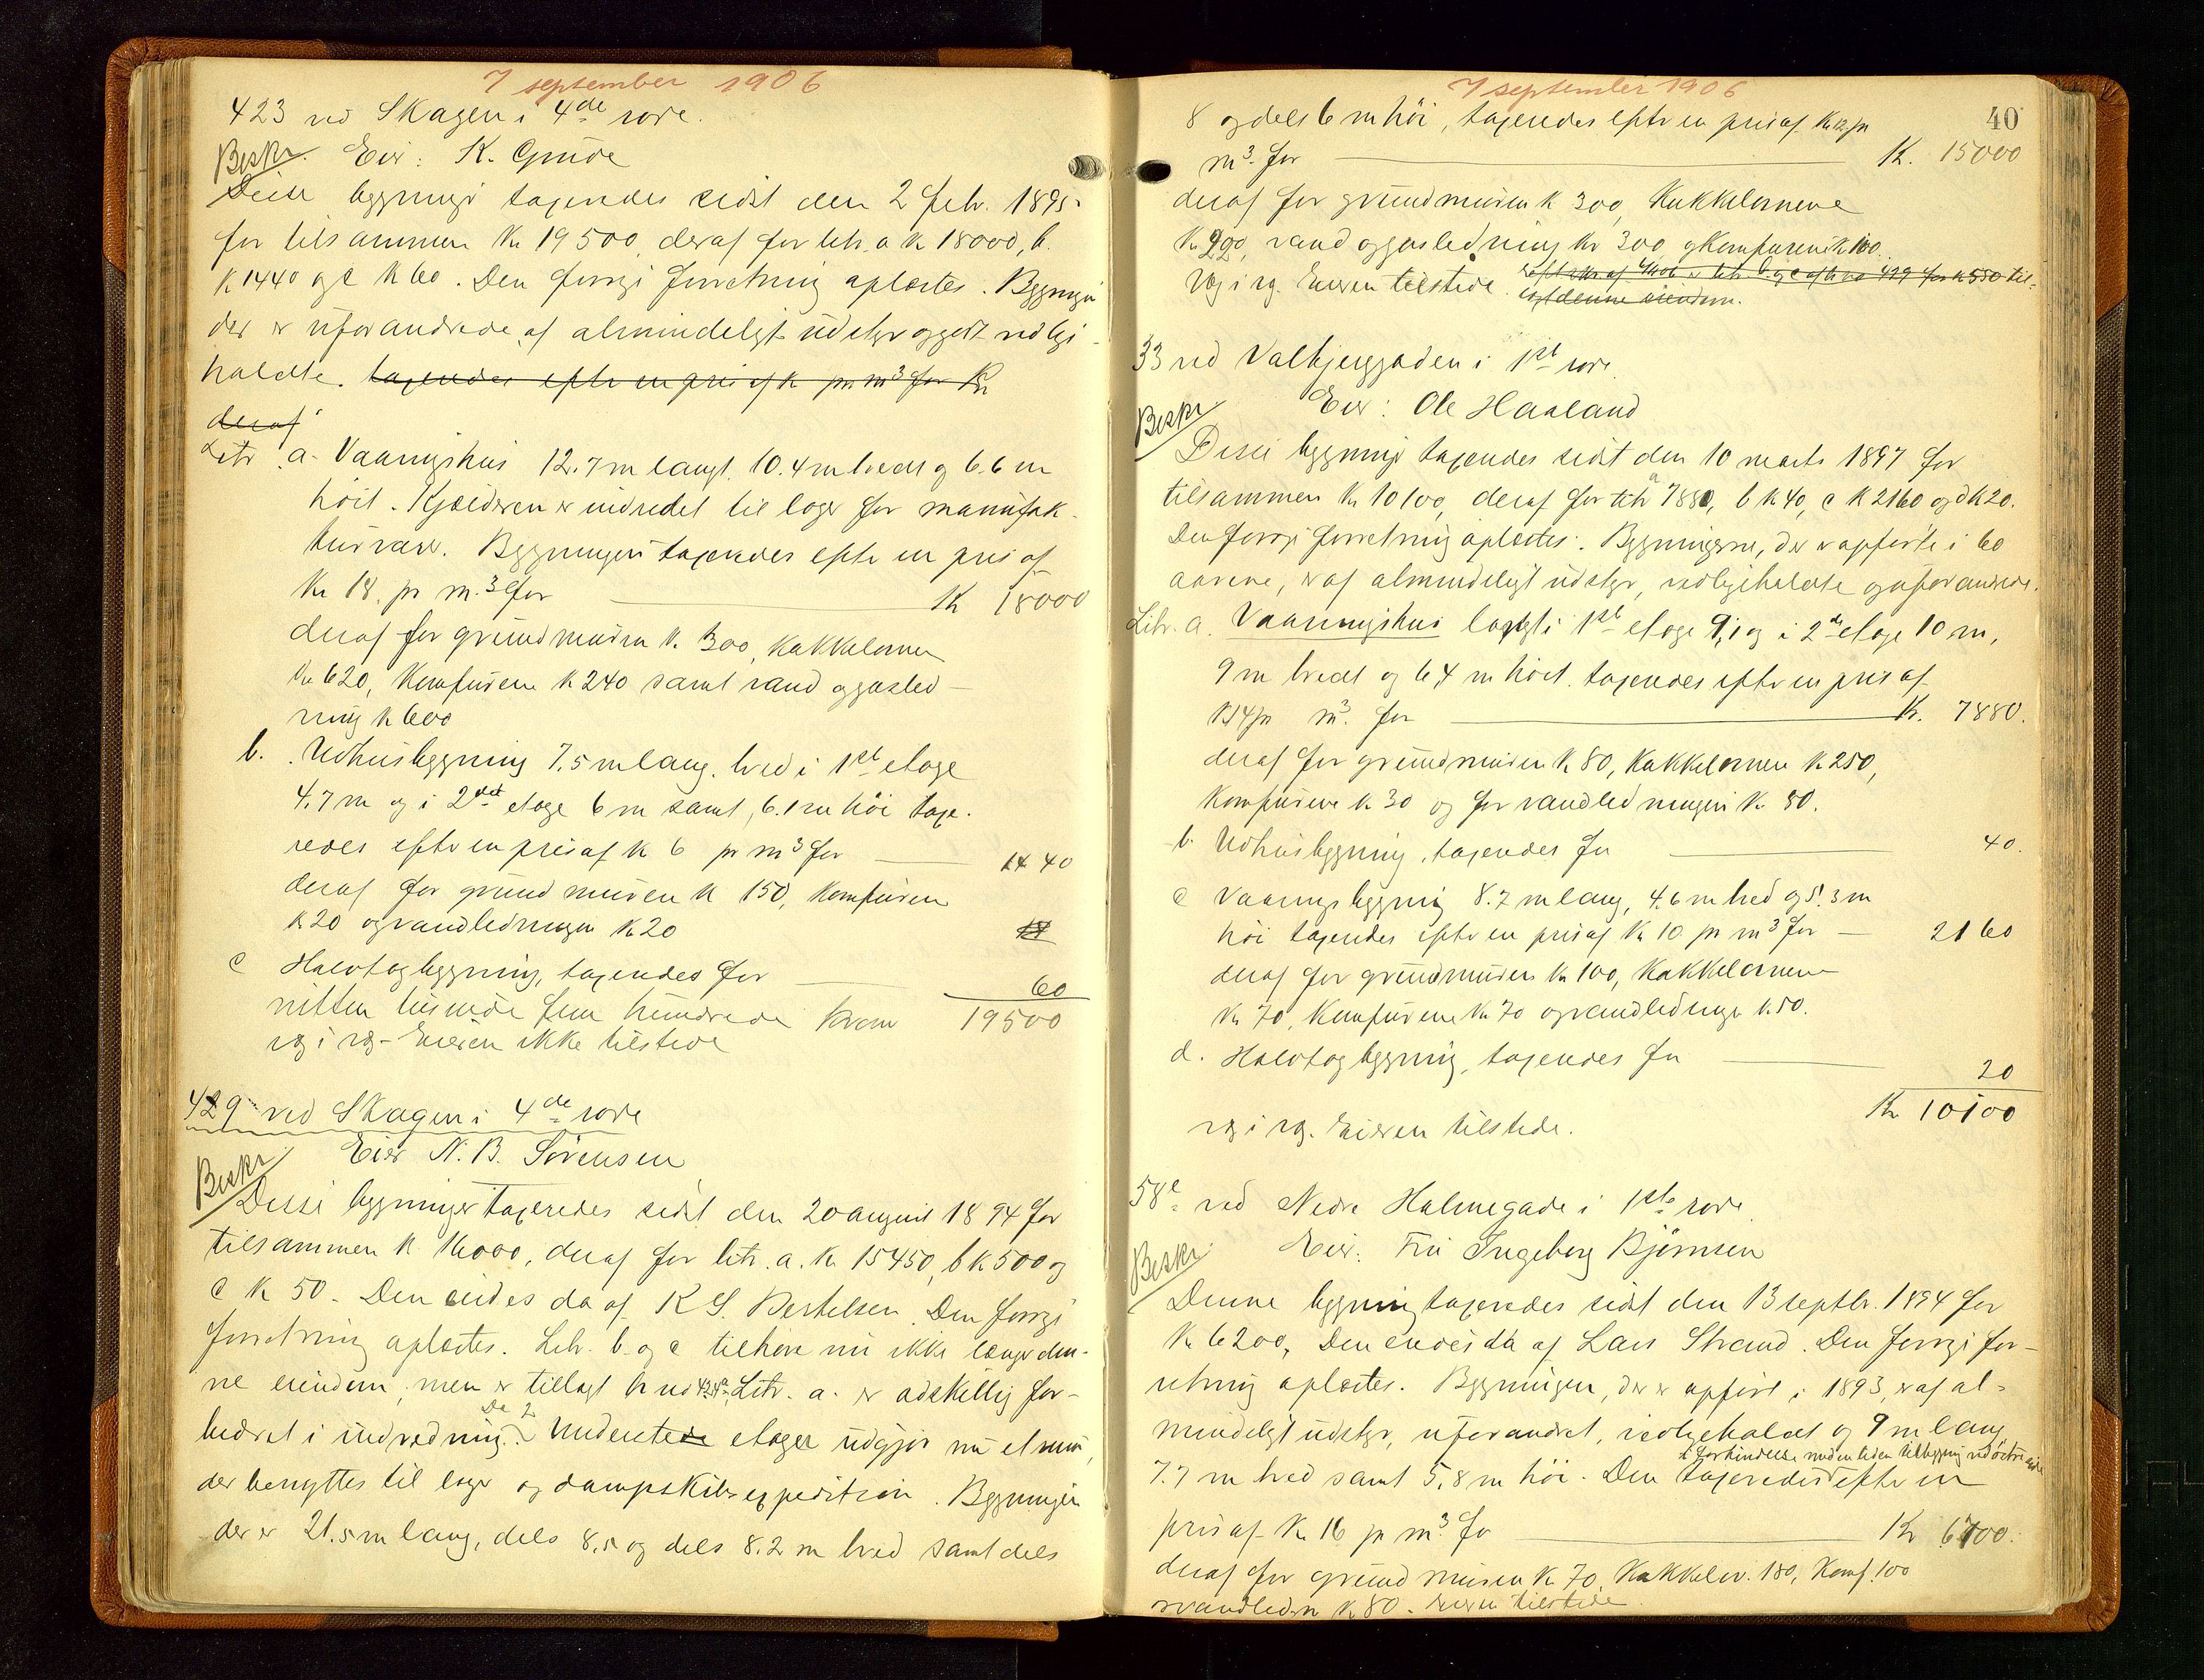 7 september 1906
423 ved Skagen i 4de rode.
Beskr. Eier: K. Grude
Disse bygninger taxeredes sidst den 2 febr. 1895
for tilsammen Kr 19500, deraf for litr. a K 18000, b.
K 1440 og c K 60. Den forrige forretning oplæstes. Bygninger
der er uforandrede, af almindeligt udstyr og godt vedlige-
holdte. taxeredes efter en pris af K pr m3 for Kr
deraf
Litr. a. Vaaningshus 12.7 m langt. 10.4 m bredt og 6.6 m
höit. Kjælderen er indredet til lager for manufak-
turvarer. Bygningen taxeredes efter en pris af
Kr 18. pr m.3 for K 18000
deraf for grundmuren K. 300, Kakkelovnene
Kr 620, Komfurene K 240 samt vand og gasled-
ning K 600
b. Udhusbygning 7.5 m lang. bred i 1ste etage
4.7 m og i 2den etage 6 m samt 6.1 m höi taxe-
redes efter en pris af K 6 pr m3 for 1440
deraf for grundmuren K 150, Komfuren
K 20 og vandledningen K 20
c Halvtagbygning, taxeredes for 60
nitten tusinde fem hundrede Kroner 19500
rg i rg- Eieren ikke tilstede
429 ved Skagen i 4de rode
Eier N. B. Sörensen
Beskr
Disse bygninger taxeredes sidst den 20 august 1894 for
tilsammen K 16000, deraf for litr. a. Kr 15450, b K 500 og
c K 50. Den eiedes da af K S. Bertelsen. Den forrige
forretning oplæstes. Litr. b og c tilhöre nu ikke længer den-
ne eiendom, men er tillagt br no Litr. a. er adskillig for-
bedret i indredning. De 2 Underste etager udgjör nu et rum,
der benyttes til lager og dampskibsexpedition. Bygningen
der er 21.5 m lang, dels 8.5 og dels 8.2 m bred samt dels
7 september 1906
40
8 og dels 6 m höi, taxeredes efter en pris af Kr 12 pr
m3. for K. 15000
deraf for grundmuren K 300, Kakkelovnene
K 290, vand og gasledning Kr 300 og Komfuren K 100.
rg i rg. Eieren tilstede. litr b og c af br no 429 for K 550 til-
lagt denne eiendom.
33 ved Valbjerggaden i 1ste rode.
Eier: Ole Haaland
Beskr
Disse bygninger taxeredes sidst den 10 marts 1897 for
tilsammen Kr 10100, deraf for litr a 7880, b K 40, c K 2160 og d K 20.
Den forrige forretning oplæstes. Bygningerne, der er opförte i 60
aarene, er af almindeligt udstyr, vedligeholdte og uforandrede.
Litr. a. Vaaningshus langt i 1ste etage 9,1 og i 2den etage 10 m,
9 m bredt og 6.4 m höit. taxeredes efter en pris af
K 14 pr m3. for K. 7880.
deraf for grundmuren K 80, Kakkelovnene K 250,
Komfurene K 30 og for vandledningen K 80.
b. Udhusbygning, taxeredes for 40.
c Vaaningsbygning 8.7 m lang, 4.6 m bred og 5.3 m
höi taxeredes efter en pris af Kr 10 pr m3 for 2160
deraf for grundmuren Kr 100, Kakkelovnene
Kr 70, Komfurene Kr 70 og vandledningen K 50.
d. Halvtagbygning, taxeredes for 20
Kr 10100
rg i rg. Eieren tilstede.
58e ved Nedre Holmegade i 1ste rode.
Eier: Fru Ingeborg Björnsen
Beskr
Denne bygning taxeredes sidst den 13 septbr. 1894 for
Kr 6200, Den eiedes da af Lars Strand. Den forrige for-
retning oplæstes. Bygningen, der er opfört i 1893, er af al-
mindeligt udstyr, uforandret, vedligeholdt og 9 m lang
7.7 m bred samt 5,8 m höi. Den taxeredes i forbindelse med en liden tilbygning ved östre side efter en
pris af Kr 16 pr m3. for Kr 6700.
deraf for grundmuren K 70, Kakkelov. 180, Komf. 100
og vandledn K 80. Eieren tilstede